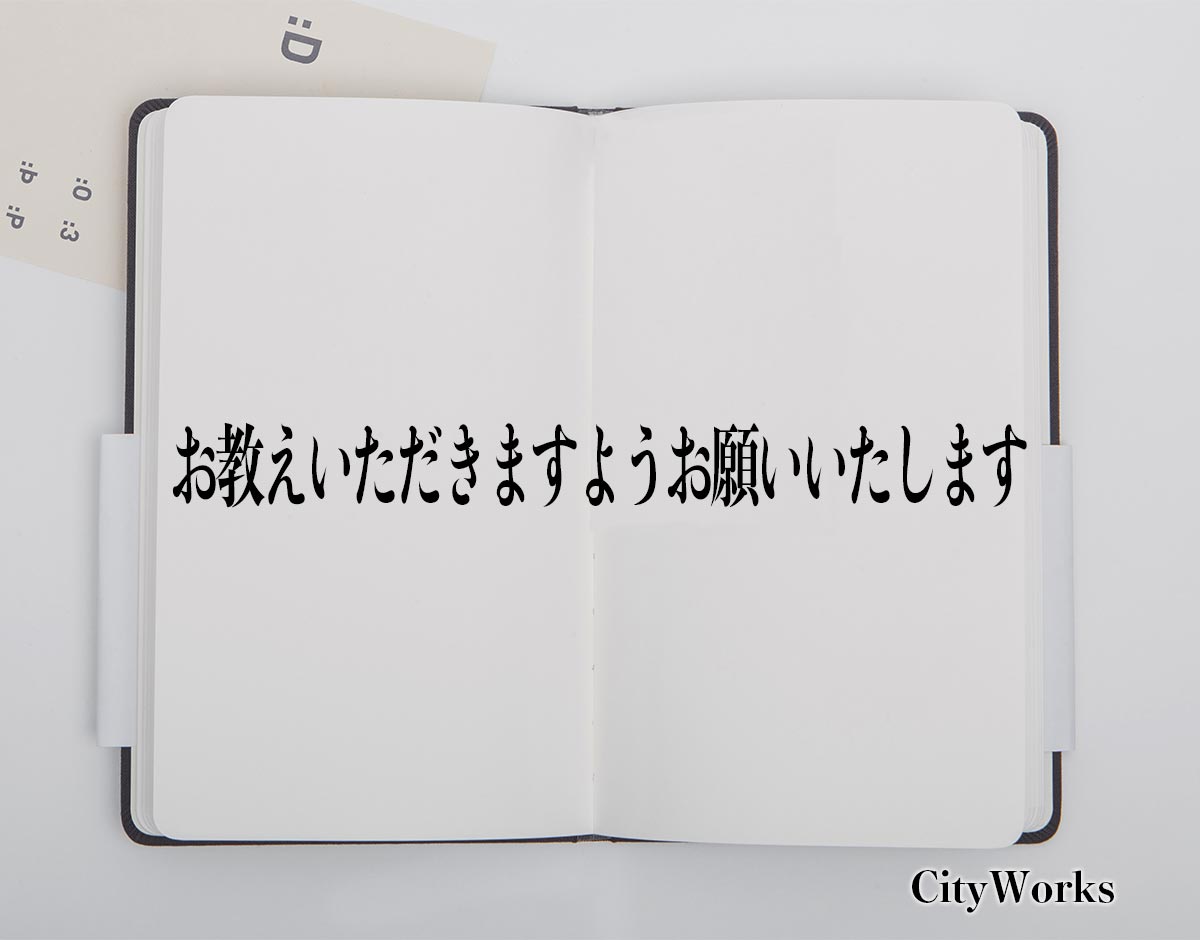 :D
:P
:O
:P
:3
お教えいただきますようお願いいたします
CityWorks